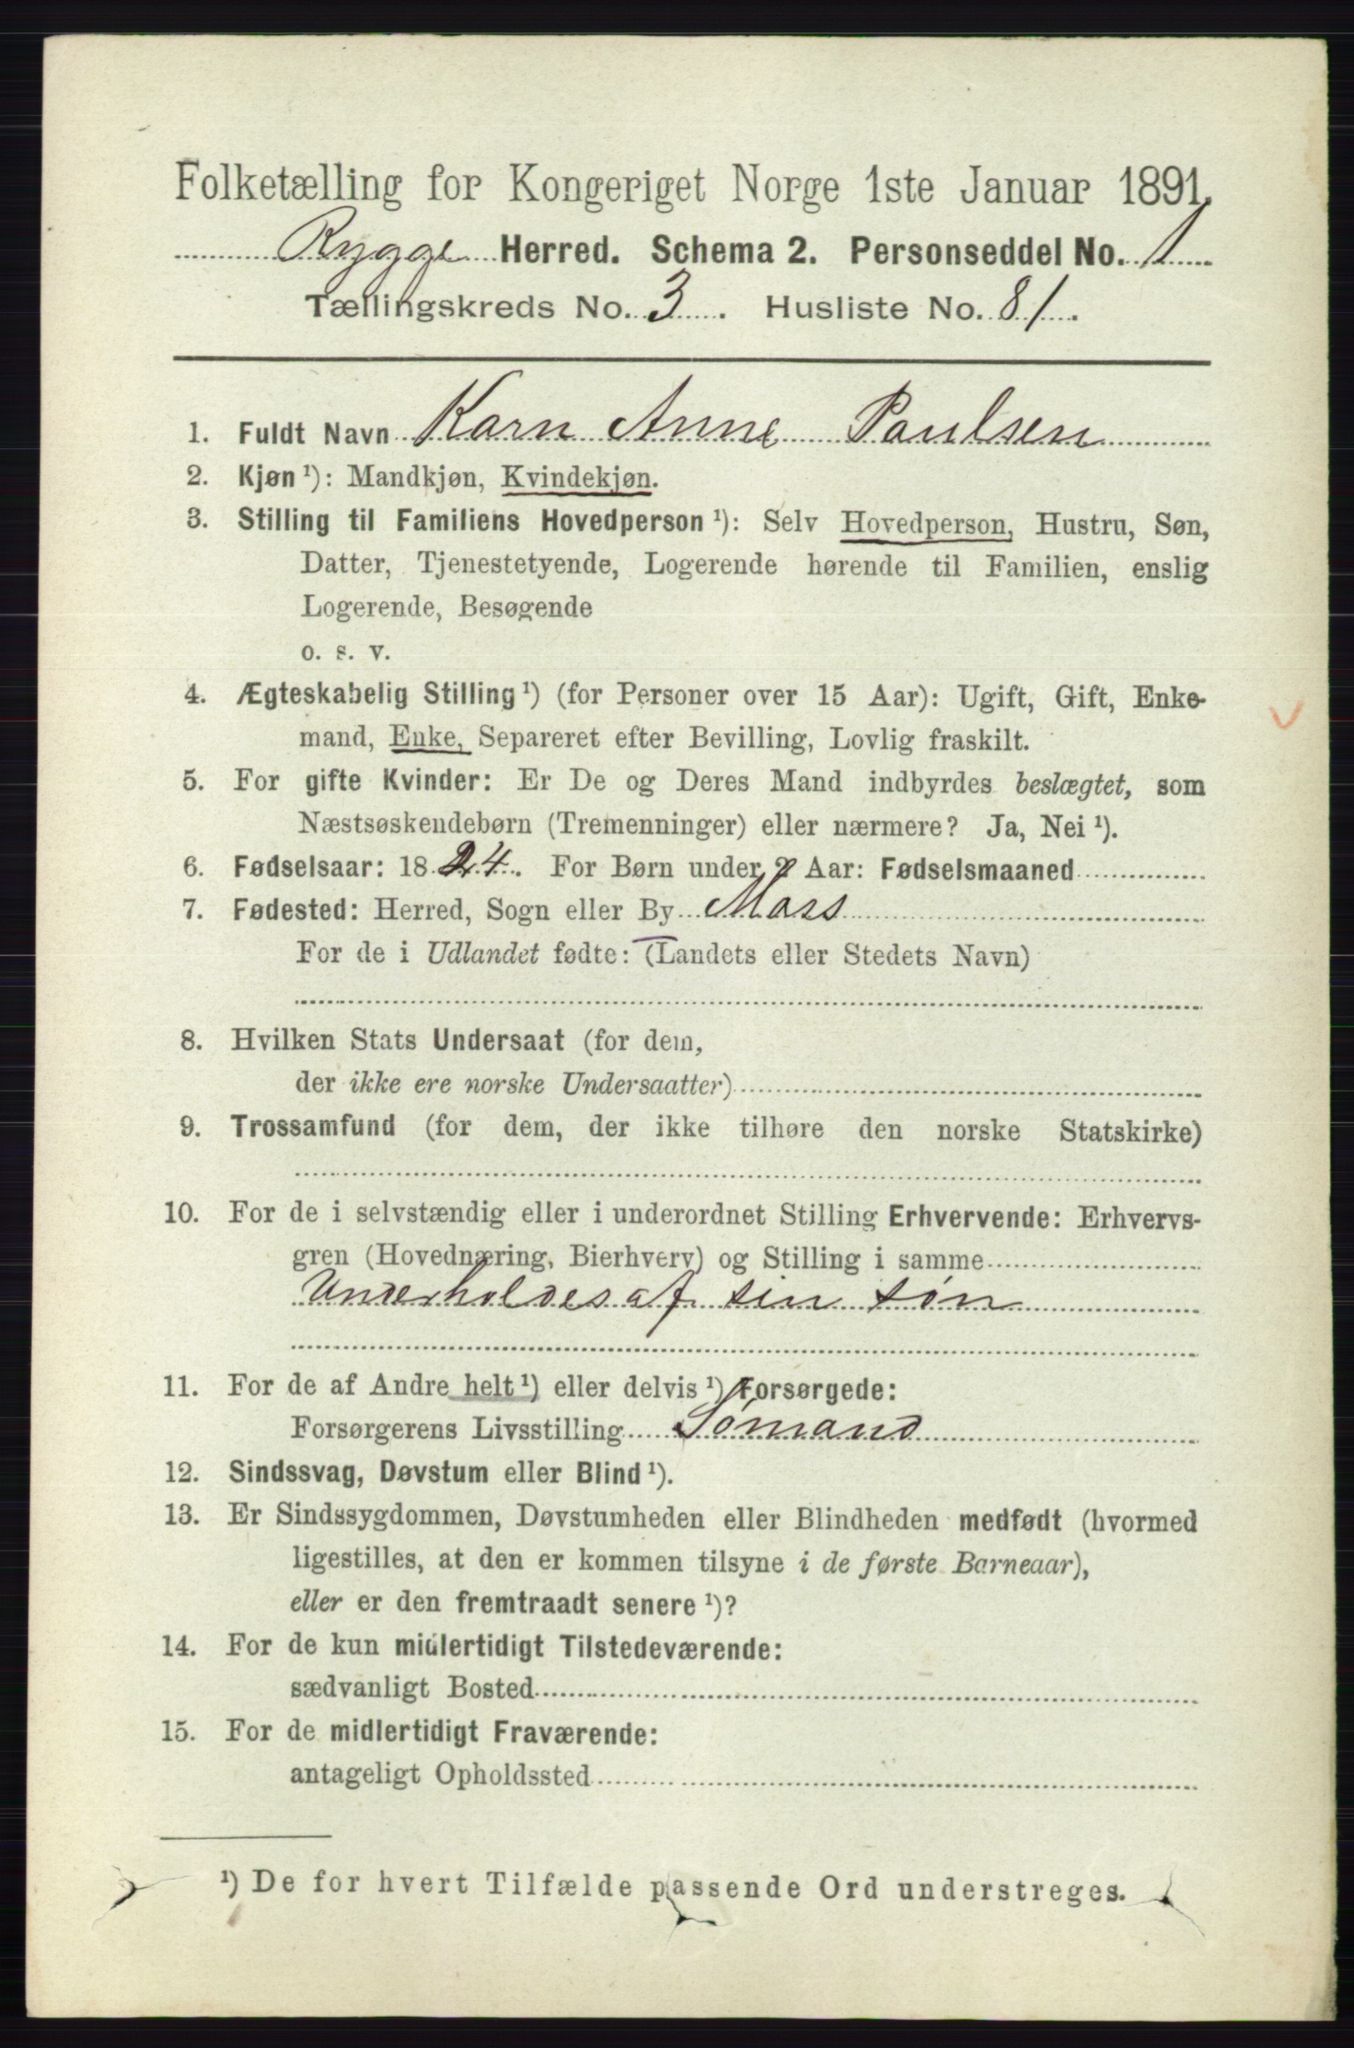 Folketælling for Kongeriget Norge 1ste Januar 1891.
Rygge Herred. Schema 2. Personseddel No. 1
Tællingskreds No. 3. Husliste No. 81.
1. Fuldt Navn Karn Anne Paulsen
2. Kjøn ¹): Mandkjøn, Kvindekjøn.
3. Stilling til Familiens Hovedperson ¹): Selv Hovedperson, Hustru, Søn,
Datter, Tjenestetyende, Logerende hørende til Familien, enslig
Logerende, Besøgende
o. s. v.
4. Ægteskabelig Stilling ¹) (for Personer over 15 Aar): Ugift, Gift, Enke-
mand, Enke, Separeret efter Bevilling, Lovlig fraskilt.
5. For gifte Kvinder: Er De og Deres Mand indbyrdes beslægtet, som
Næstsøskendebørn (Tremenninger) eller nærmere? Ja, Nei ¹).
6. Fødselsaar: 1824. For Børn under 2 Aar: Fødselsmaaned
7. Fødested: Herred, Sogn eller By Moss
For de i Udlandet fødte: (Landets eller Stedets Navn)
8. Hvilken Stats Undersaat (for dem,
der ikke ere norske Undersaatter)
9. Trossamfund (for dem, der ikke tilhøre den norske Statskirke)
10. For de i selvstændig eller i underordnet Stilling Erhvervende: Erhvervs-
gren (Hovednæring, Bierhverv) og Stilling i samme
Underholdes af sin søn
11. For de af Andre helt ¹) eller delvis ¹) Forsørgede:
Forsørgerens Livsstilling Sømand
12. Sindssvag, Døvstum eller Blind ¹).
13. Er Sindssygdommen, Døvstumheden eller Blindheden medfødt (hvormed
ligestilles, at den er kommen tilsyne i de første Barneaar),
eller er den fremtraadt senere ¹)?
14. For de kun midlertidigt Tilstedeværende:
sædvanligt Bosted
15. For de midlertidigt Fraværende:
antageligt Opholdssted
¹) De for hvert Tilfælde passende Ord understreges.